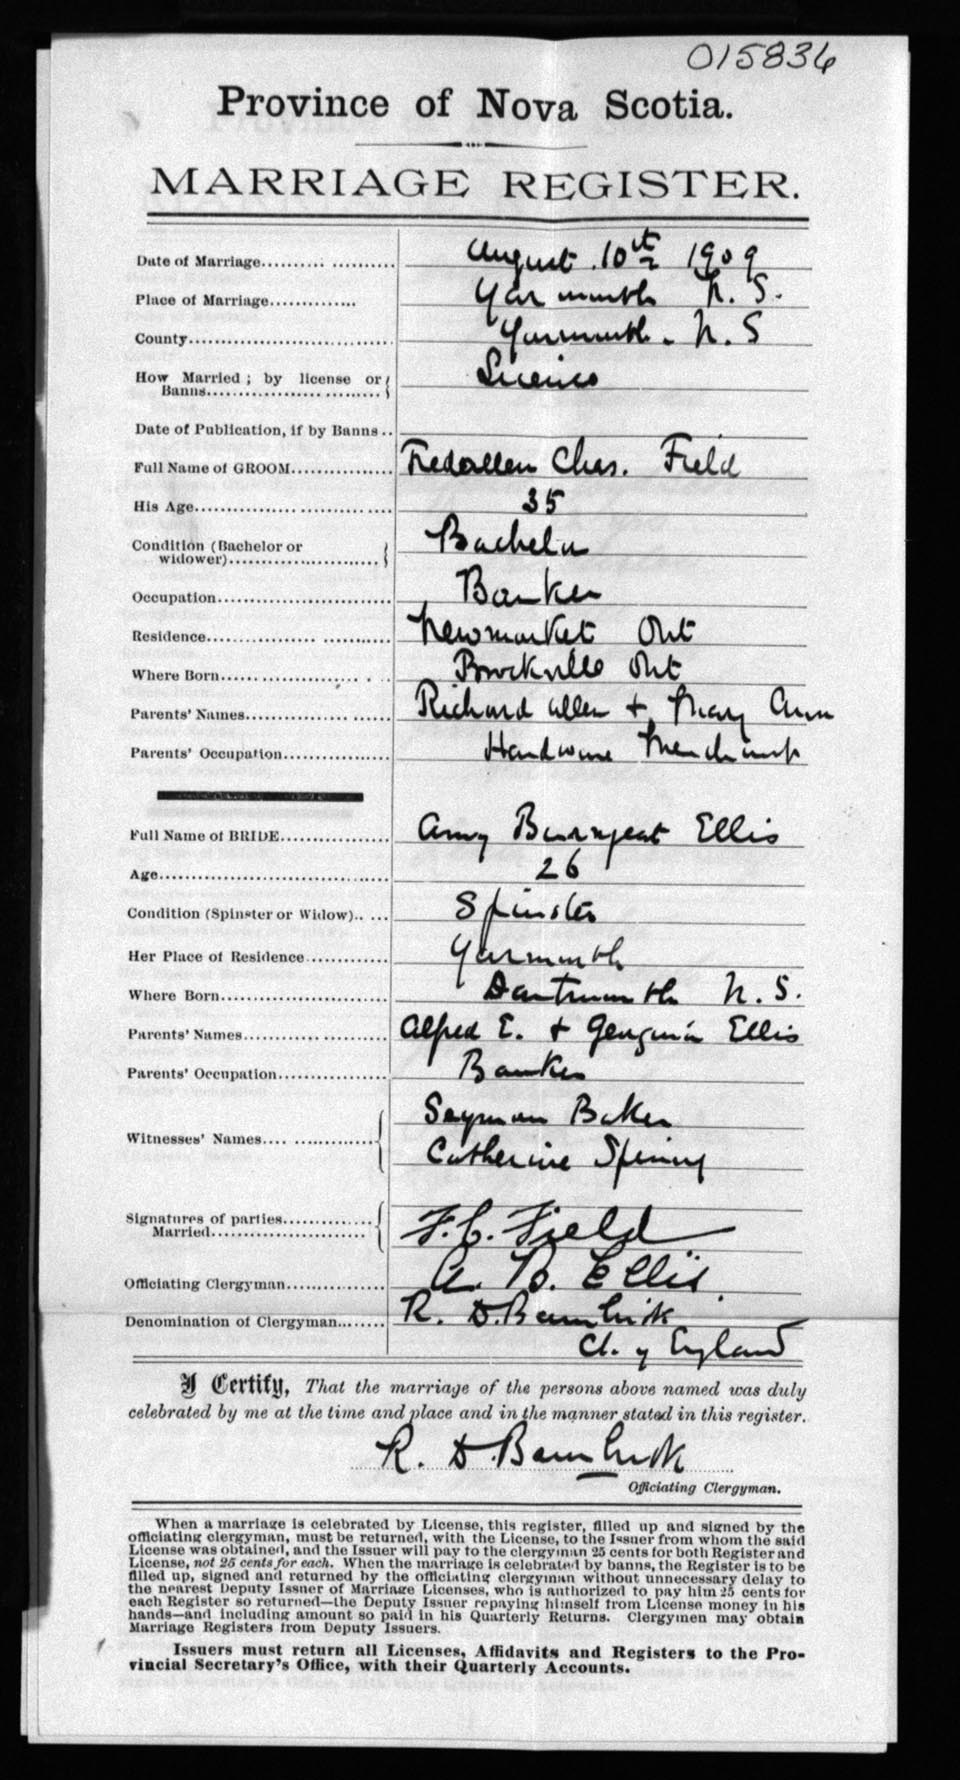 015836
Province of Nova Scotia.
MARRIAGE REGISTER.
Date of Marriage........... August 10th 1909
Place of Marriage............. Yarmouth N. S.
County............................... Yarmouth. N. S
How Married; by license or
Banns........................ License
Date of Publication, if by Banns..
Full Name of GROOM............... Chas. Field
His Age............................. 35
Condition (Bachelor or
widower)........................ Bachelor
Occupation........................... Banker
Residence........................... Newmarket Ont
Where Born........................ Brockville Ont
Parents' Names..................... Richard Allen + Mary Ann
Parents' Occupation................. Hardware Merchant
Full Name of BRIDE................ Amy Burnyeat Ellis
Age.................................. 26
Condition (Spinster or Widow)..... Spinster
Her Place of Residence............. Yarmouth
Where Born......................... Dartmouth N. S.
Parents' Names..................... Alfred E. + Georgina Ellis
Parents' Occupation................. Banker
Witnesses' Names.................. Seymour Baker
Catherine Spinney
Signatures of parties..............
Married....................... F. C. Field
A. B. Ellis
Officiating Clergyman...............
Denomination of Clergyman........ R. D. Bambrick
Ch. of England
I Certify, That the marriage of the persons above named was duly
celebrated by me at the time and place and in the manner stated in this register.
R. D. Bambrick
Officiating Clergyman.
When a marriage is celebrated by License, this register, filled up and signed by the
officiating clergyman, must be returned, with the License, to the Issuer from whom the said
License was obtained, and the Issuer will pay to the clergyman 25 cents for both Register and
License, not 25 cents for each. When the marriage is celebrated by banns, the Register is to be
filled up, signed and returned by the officiating clergyman without unnecessary delay to
the nearest Deputy Issuer of Marriage Licenses, who is authorized to pay him 25 cents for
each Register so returned—the Deputy Issuer repaying himself from License money in his
hands—and including amount so paid in his Quarterly Returns. Clergymen may obtain
Marriage Registers from Deputy Issuers.
Issuers must return all Licenses, Affidavits and Registers to the Pro-
vincial Secretary's Office, with their Quarterly Accounts.